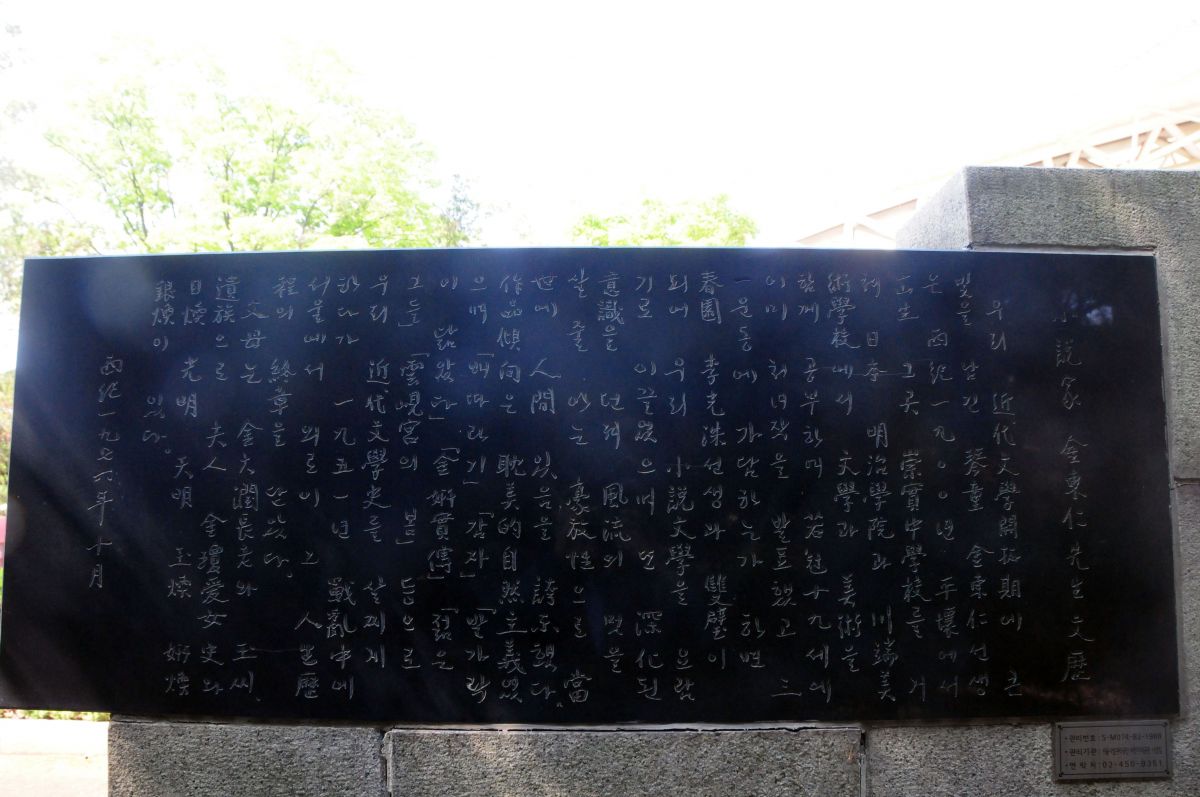 小說家 金東仁先生文歷
우리 近代文學開拓期에 큰
빛을 남긴 琴童 金東仁선생
은 西紀一九○○년 平壤에서
出生 그곳 崇實中學校를 거
쳐 日本 明治學院과 川端美
術學校에서 文學과 美術을
함께 공부하며 若冠十九세에
이미 처녀작을 발표했고 三
一운동에 가담하는가 하면
春園 李光洙선생과 雙璧이
되어 우리 小說文學을 요람
기로 이끌었으며 또 深化된
意識을 던져 風流의 멋을
살 줄 아는 豪放性으로 當
世에 人間 있음을 誇示했다.
作品傾向은 耽美的自然主義였
으며「배따라기」「감자」「발가락
이 닮았다」「金姸實傳」「젊은
그들」「雲峴宮의 봄」등으로
우리 近代文學史를 살찌게
하다가 一九五一년 戰亂中에
서울에서 외로이 그 人生歷
程의 終章을 닫았다.
父母는 金大潤長老와 玉씨,
遺族으로 夫人 金瓊愛女史와
日煥 光明 天明 玉煥 姸煥
銀煥이 있다.
西紀一九七六年 十月
•관리번호 : S-M074-B2-1989
•관리기관 :
•연락처 : 02-450-9351